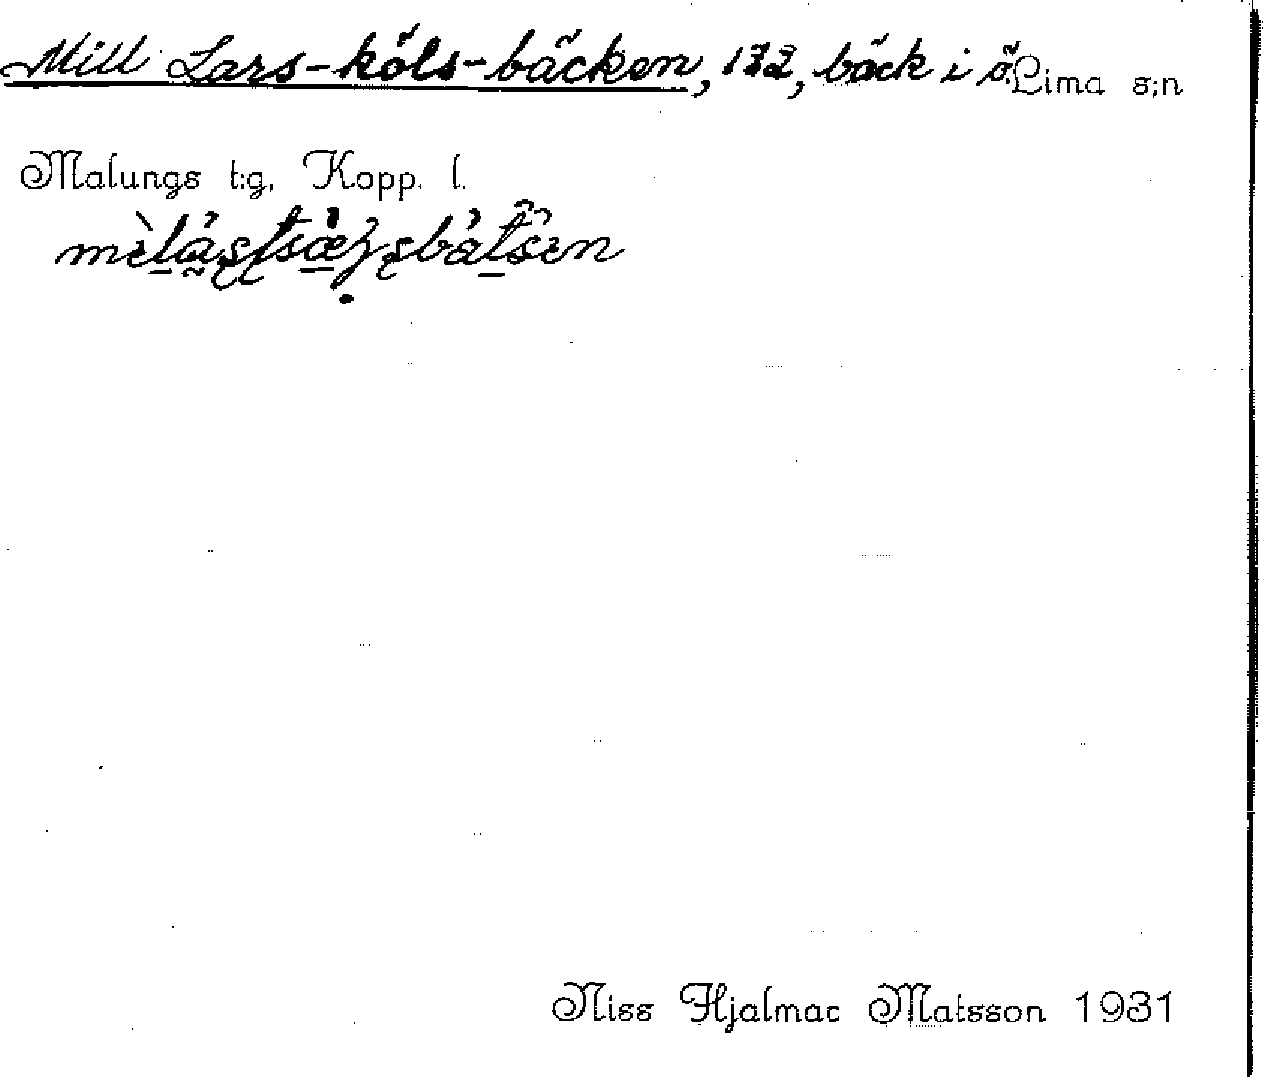 Mill Lars-köls-bäcken, 132, bäck i ö. Lima s:n
Malungs t:g, Kopp. l.
Niss Hjalmar Matsson 1931